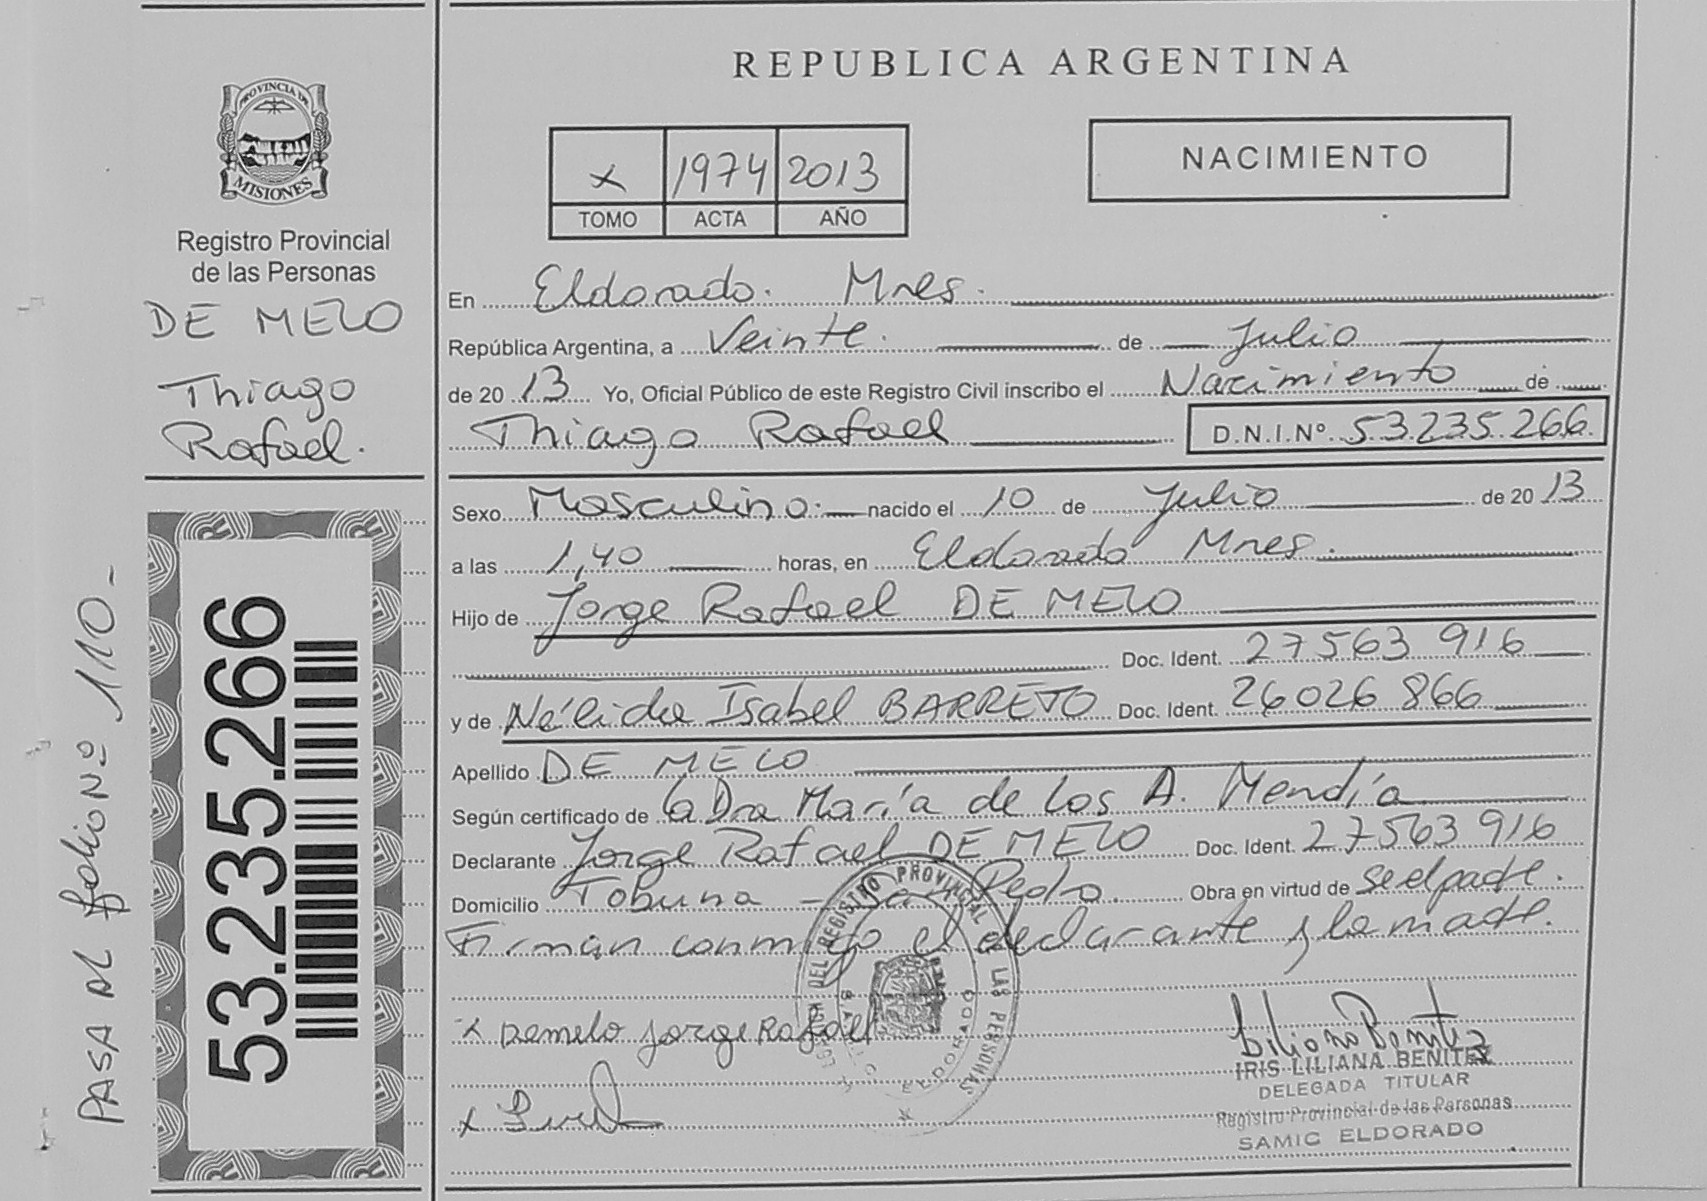 PROVINCIA DE
MISIONES
Registro Provincial
de las Personas
DE MELO
Thiago
Rafael.
53.235.266
PASA AL folio Nº 110-
REPUBLICA ARGENTINA
x 1974 2013
TOMO ACTA AÑO
NACIMIENTO
En Eldorado. Mnes.
República Argentina, a Veinte. de Julio
de 20 13 Yo, Oficial Público de este Registro Civil inscribo el Nacimiento de
Thiago Rafael D.N.I.Nº 53.235.266
Sexo Masculino. nacido el 10 de Julio de 20 13
a las 1,40 horas, en Eldorado Mnes.
Hijo de Jorge Rafael DE MELO
Doc. Ident. 27563 916
y de Nélida Isabel BARRETO Doc. Ident. 26026 866
Apellido DE MELO
Según certificado de la Dra María de los A. Mendía
Declarante Jorge Rafael DE MELO Doc. Ident. 27563 916
Domicilio Tobuna - San Pedro. Obra en virtud de se el padre.
Firman conmigo el declarante y la madre.
x Demelo jorge Rafael
x
Liliana Benitez
IRIS LILIANA BENITEZ
DELEGADA TITULAR
Registro Provincial de las Personas
SAMIC ELDORADO
DEL REGISTRO PROVINCIAL DE LAS PERSONAS
ELDORADO